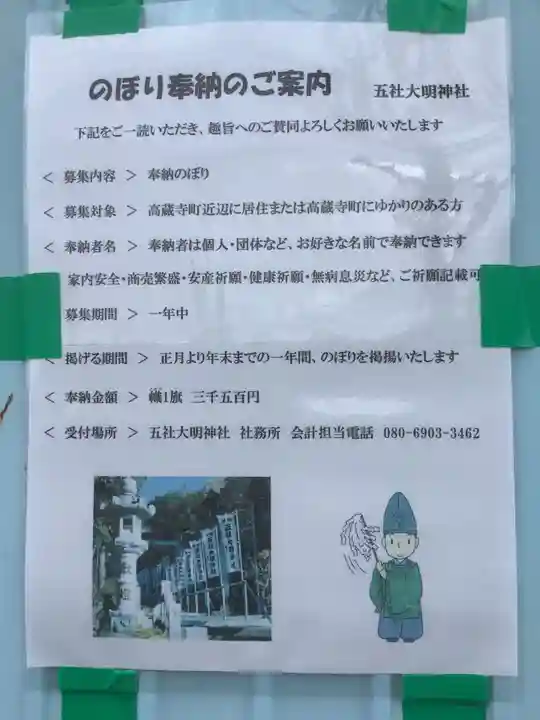 のぼり奉納のご案内 五社大明神社
下記をご一読いただき、趣旨へのご賛同よろしくお願いいたします
＜ 募集内容 ＞ 奉納のぼり
＜ 募集対象 ＞ 高蔵寺町近辺に居住または高蔵寺町にゆかりのある方
＜ 奉納者名 ＞ 奉納者は個人・団体など、お好きな名前で奉納できます
家内安全・商売繁盛・安産祈願・健康祈願・無病息災など、ご祈願記載可
募集期間 ＞ 一年中
＜ 掲げる期間 ＞ 正月より年末までの一年間、のぼりを掲揚いたします
＜ 奉納金額 ＞ 幟1旗 三千五百円
＜ 受付場所 ＞ 五社大明神社 社務所 会計担当電話 080-6903-3462